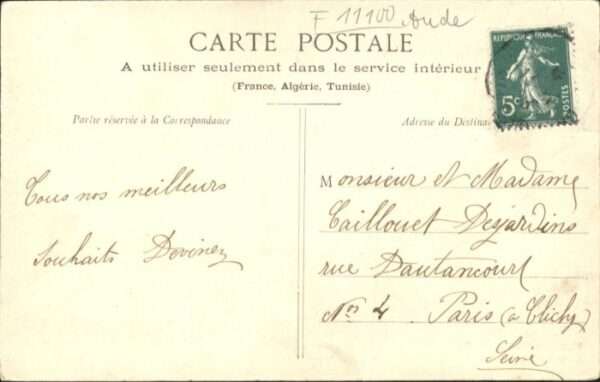 F 11100 Aude
CARTE POSTALE
A utiliser seulement dans le service intérieur
(France, Algérie, Tunisie)
REPUBLIQUE FRANÇAISE
5c
POSTES
Partie réservée à la Correspondance
Adresse du Destina
Tous nos meilleurs
souhaits Dovinez
Monsieur et Madame
Caillouet Desjardins
rue Dautancourt
Nos 4 Paris (a Clichy)
Seine